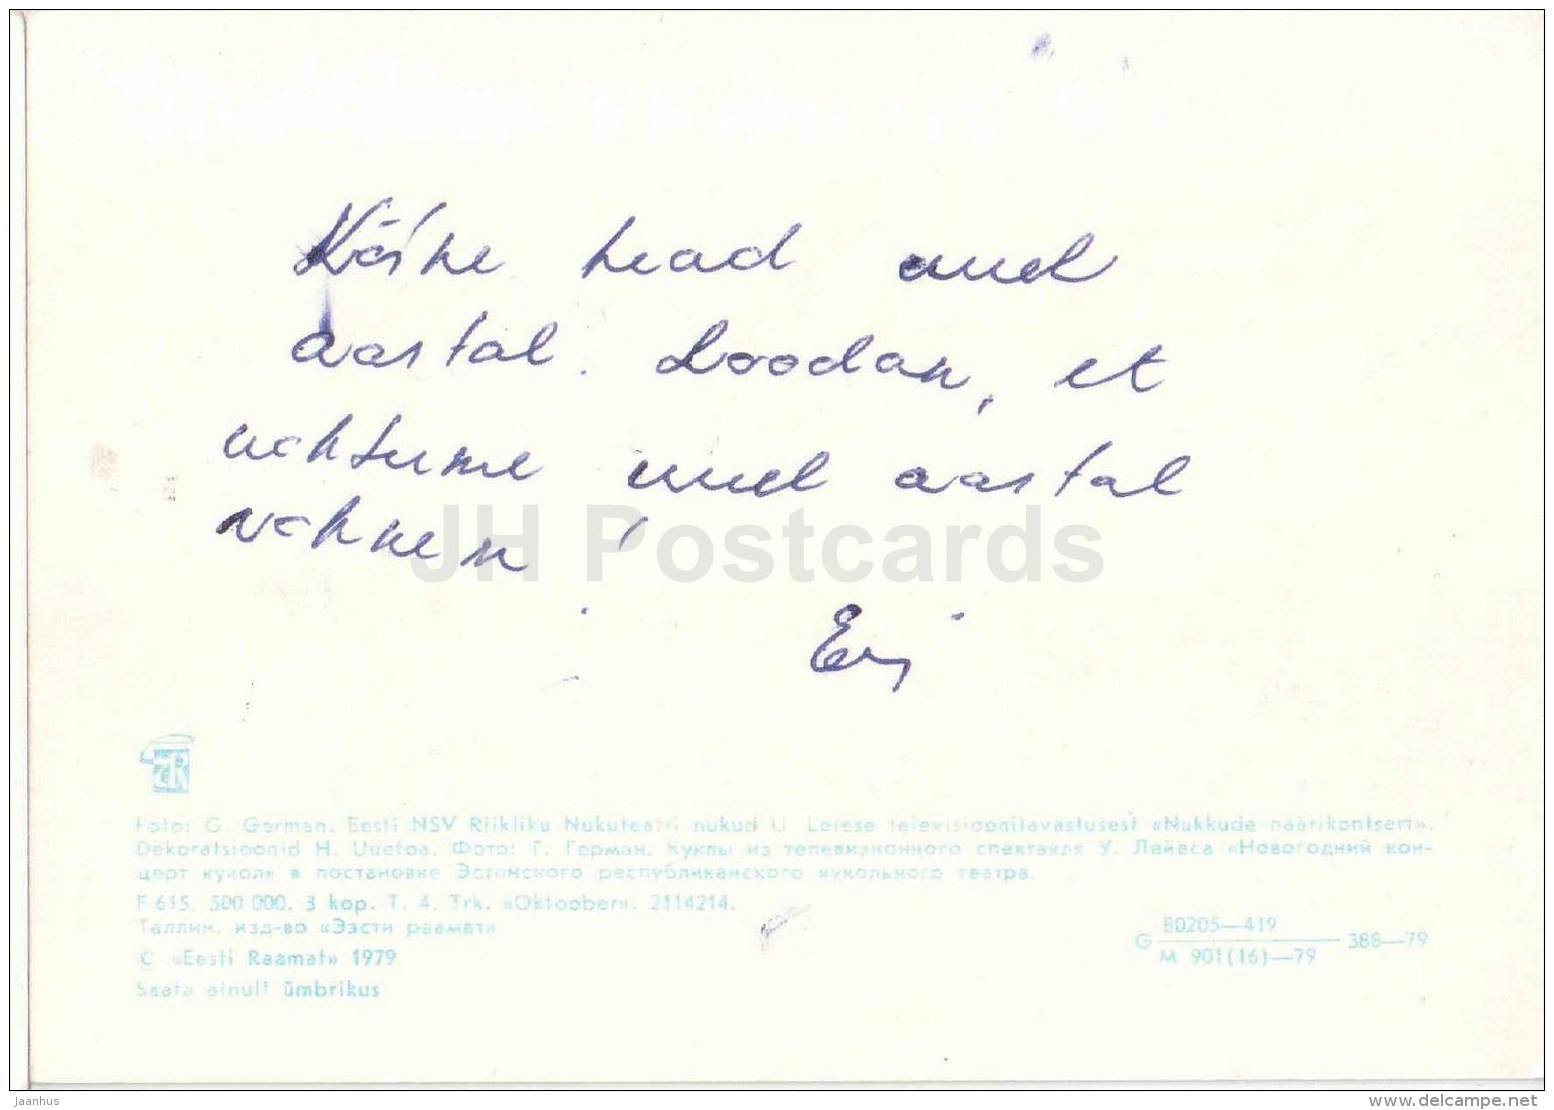 head uuel
aastal. Loodan, et
kohtume uuel aastal
rohkem!
ER
Foto: G. German. Eesti NSV Riikliku Nukuteatri nukud U. Leiese televisioonilavastusest «Nukkude näärikontsert».
Dekoratsioonid H. Uuetoa. Фото: Г. Герман. Куклы из телевизионного спектакля У. Лейеса «Новогодний кон-
церт кукол» в постановке Эстонского республиканского кукольного театра.
F 615. 500 000. 3 kop. T. 4. Trk. «Oktoober». 2114214.
Таллин, изд-во «Ээсти раамат»
© «Eesti Raamat» 1979
Saata ainult ümbrikus
G 80205—419
M 901(16)—79 388—79
JH Postcards
Jaanhus
delcampe.net